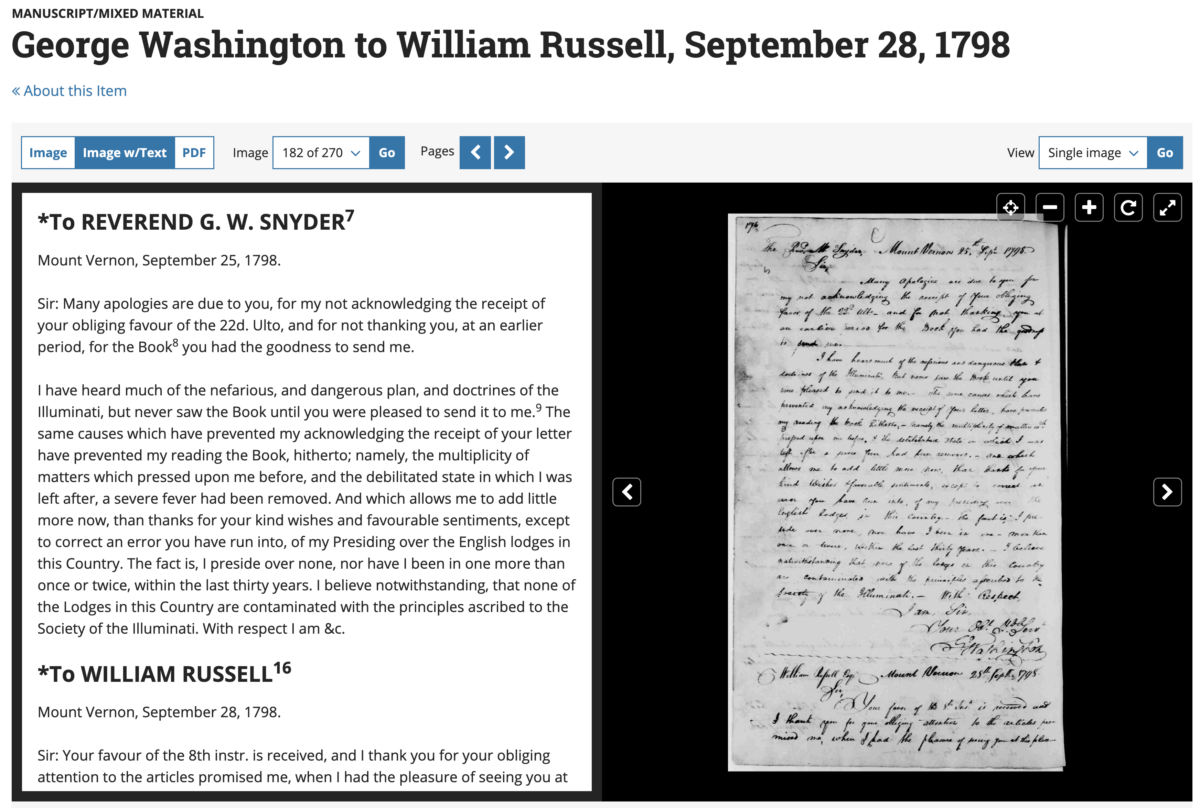 MANUSCRIPT/MIXED MATERIAL
George Washington to William Russell, September 28, 1798
« About this Item
Image Image w/Text PDF Image 182 of 270 Go Pages View Single image Go
*To REVEREND G. W. SNYDER7
Mount Vernon, September 25, 1798.
Sir: Many apologies are due to you, for my not acknowledging the receipt of
your obliging favour of the 22d. Ulto, and for not thanking you, at an earlier
period, for the Book8 you had the goodness to send me.
I have heard much of the nefarious, and dangerous plan, and doctrines of the
Illuminati, but never saw the Book until you were pleased to send it to me.9 The
same causes which have prevented my acknowledging the receipt of your letter
have prevented my reading the Book, hitherto; namely, the multiplicity of
matters which pressed upon me before, and the debilitated state in which I was
left after, a severe fever had been removed. And which allows me to add little
more now, than thanks for your kind wishes and favourable sentiments, except
to correct an error you have run into, of my Presiding over the English lodges in
this Country. The fact is, I preside over none, nor have I been in one more than
once or twice, within the last thirty years. I believe notwithstanding, that none of
the Lodges in this Country are contaminated with the principles ascribed to the
Society of the Illuminati. With respect I am &c.
*To WILLIAM RUSSELL16
Mount Vernon, September 28, 1798.
Sir: Your favour of the 8th instr. is received, and I thank you for your obliging
attention to the articles promised me, when I had the pleasure of seeing you at
Mount Vernon 25th Sepr 1798
Sir
Many Apologies are due to you for
my not acknowledging the receipt of your obliging
favor of the 22d Ulto and for not thanking you at
an earlier period for the Book you had the goodness
to send me.
I have heard much of the nefarious and dangerous plan &
doctrines of the Illuminati, but never saw the Book until you
were pleased to send it to me. The same causes which have
prevented my acknowledging the receipt of your letter, have
my reading the Book hitherto, namely the multiplicity of matters
pressed upon me before, & the debilitated state in which I was
left after a severe fever had been removed. and which
allows me to add little more now, than thanks for your
kind wishes & favourable sentiments, except to correct an
error you have run into, of my Presiding over the
English Lodges in this Country. The fact is, I pre-
side over none, nor have I been in one more than
once or twice, within the last thirty years. I believe
notwithstanding that none of the Lodges in this Country
are contaminated with the principles ascribed to the
Society of the Illuminati. With Respect
I am, Sir,
William Russell Esqr Mount Vernon 28th Sept 1798
Sir,
Your favor of the 8th Inst is received and
I thank you for your obliging attention to the articles pro-
mised me, when I had the pleasure of seeing you at this place